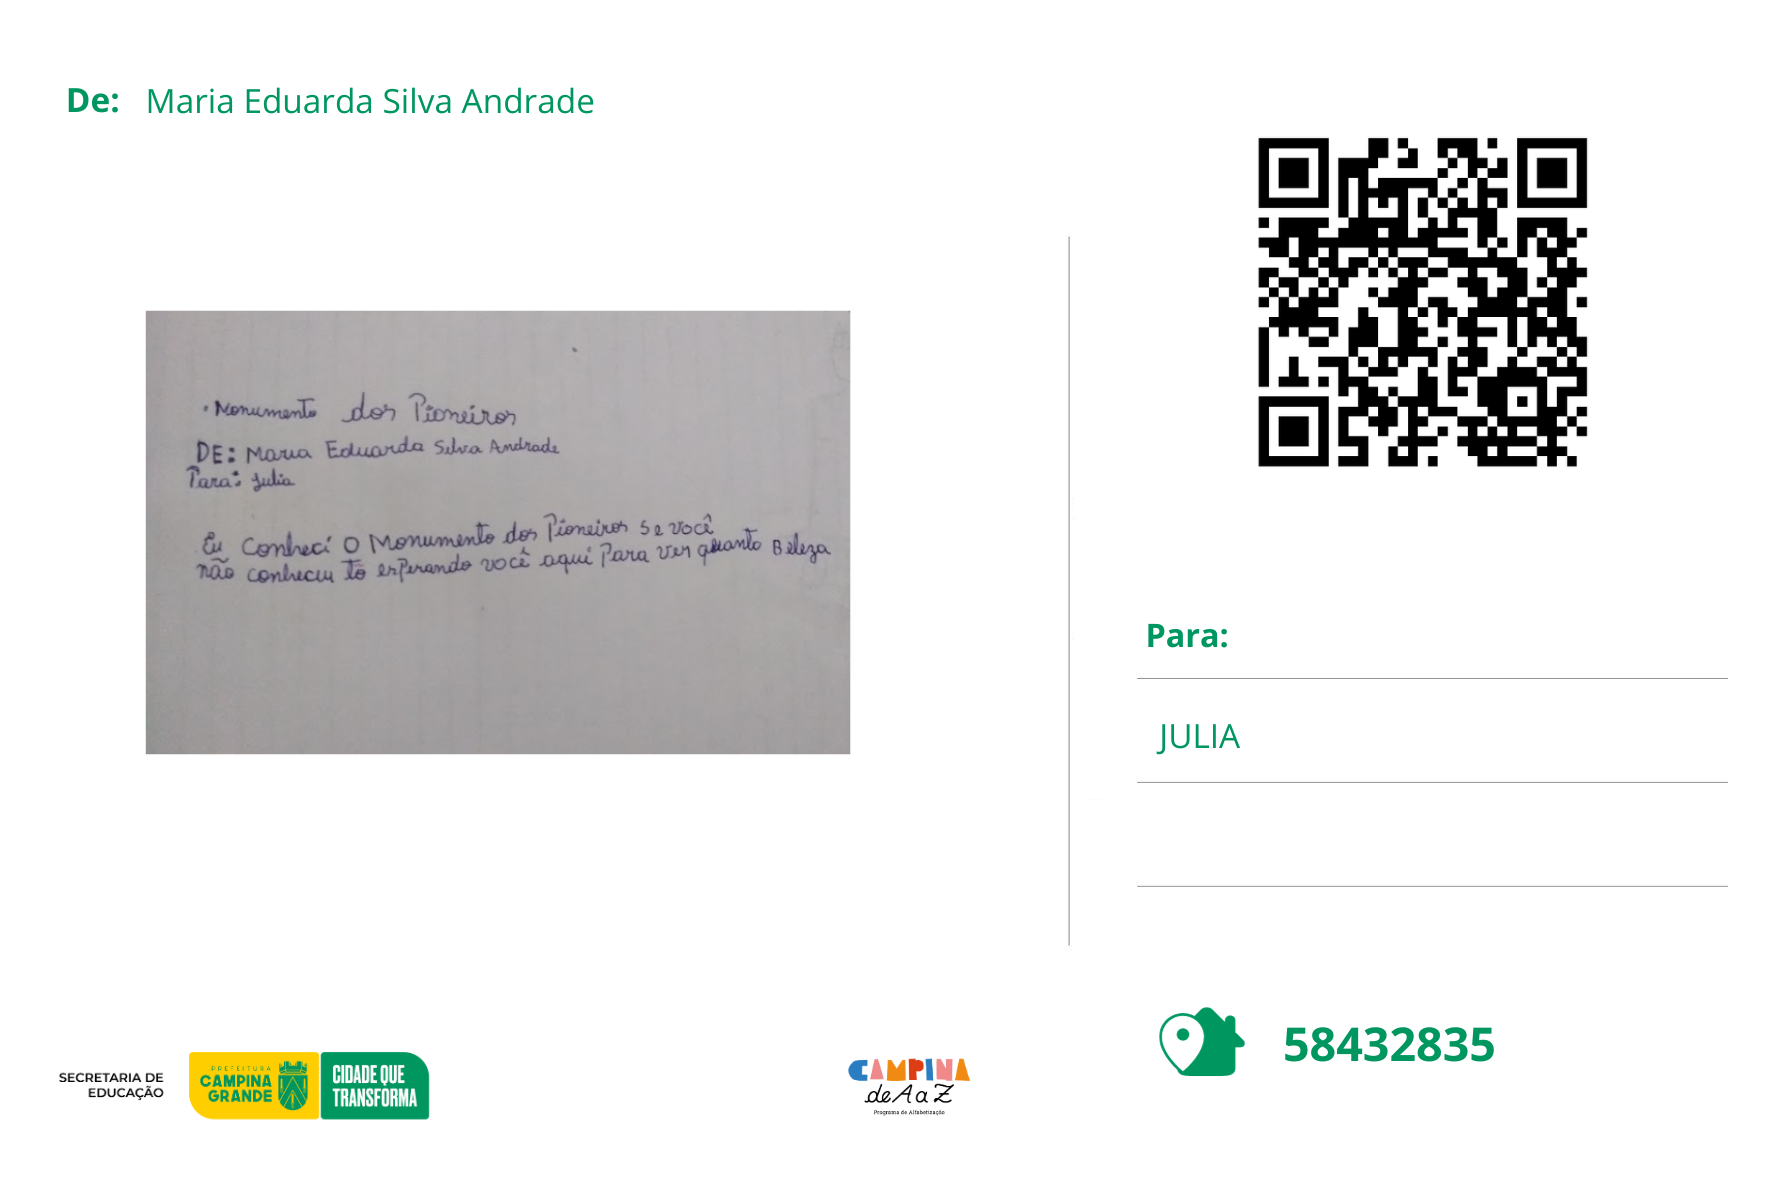 De: Maria Eduarda Silva Andrade
• Monumento dos Pioneiros
DE: Maria Eduarda Silva Andrade
Para: Julia
Eu Conheci O Monumento dos Pioneiros Se você
não conheceu tô esperando você aqui Para ver quanto Beleza
Para:
JULIA
58432835
SECRETARIA DE
EDUCAÇÃO
PREFEITURA
CAMPINA
GRANDE
CIDADE QUE
TRANSFORMA
CAMPINA
de A a Z
Programa de Alfabetização